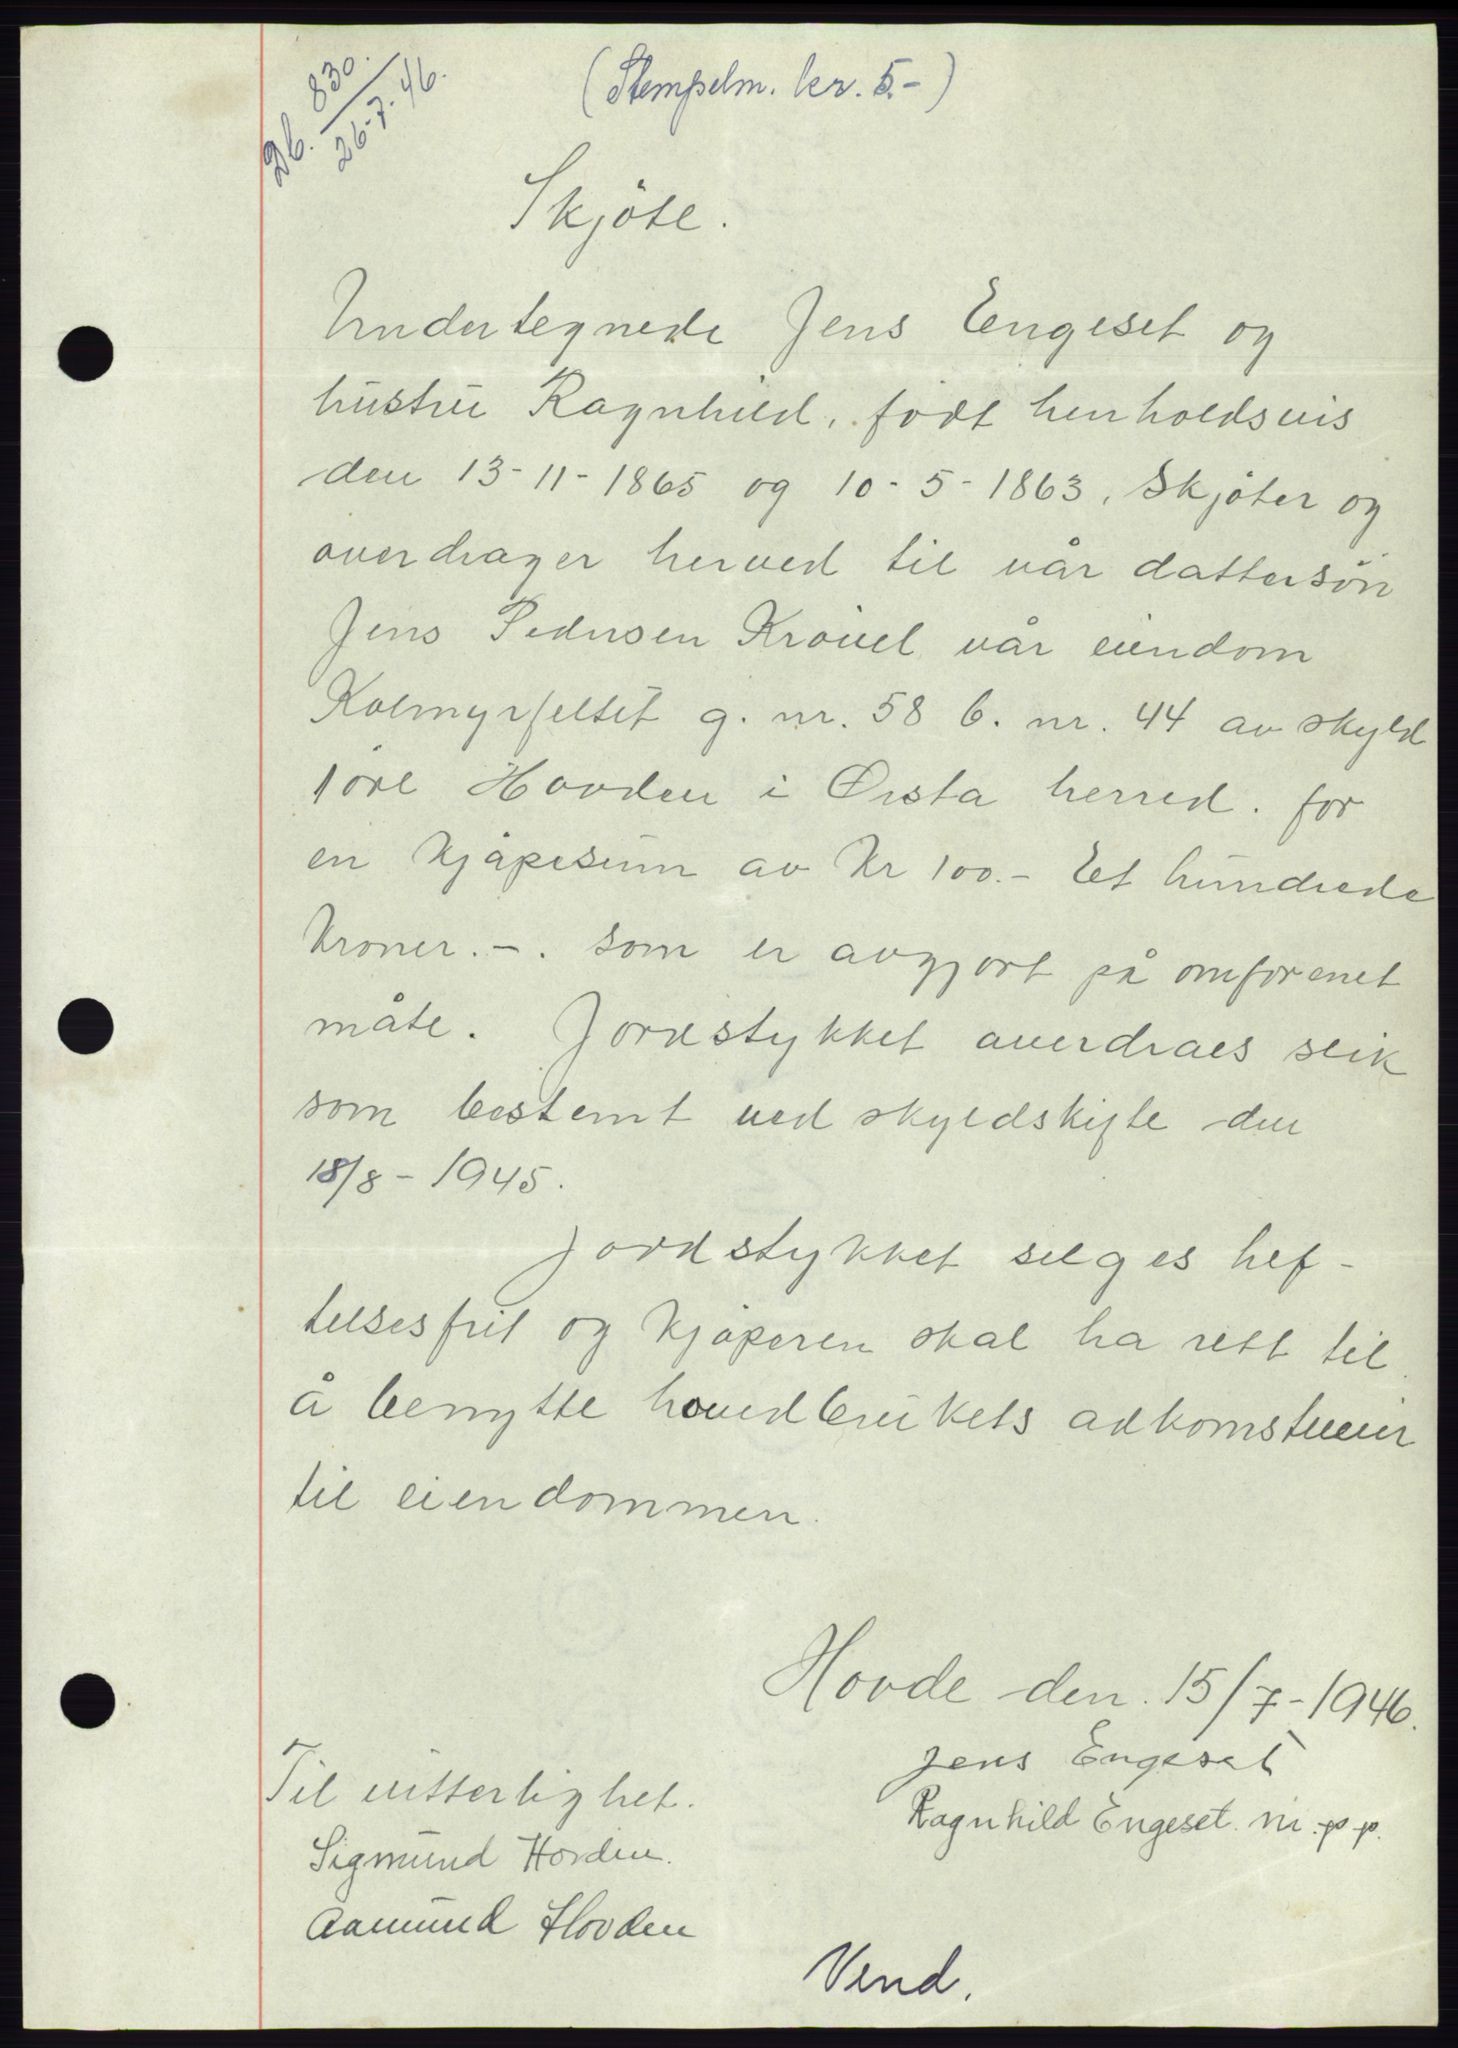 Db. 830.
26-7-46.
(Stempelm. kr. 5.-)
Skjöte.
Undertegnede Jens Engeset og
hustru Ragnhild, födt henholdsvis
den 13-11-1865 og 10-5-1863, Skjöter og
overdrager herved til vår dattersön
Jens Pedersen Krövel vår eiendom
Kolmyrfeltet g. nr. 58 b. nr. 44 av skyld
1 öre Hovden i Ørsta herred. for
en kjöpesum av Kr 100.- Et hundrede
Kroner.-. som er avgjort på omforenet
måte. Jordstykket överdraes slik
som bestemt ved skyldskifte den
18/8-1945.
Jordstykket selges hef-
telsesfrit og kjöperen skal ha rett til
å benytte hovedbrukets adkomstveier
til eiendommen.
Hovde den. 15/7-1946.
Jens Engeset
Ragnhild Engeset. m.p.p.
Til vitterlighet.
Sigmund Hovden.
Aamund Hovden
Vend.